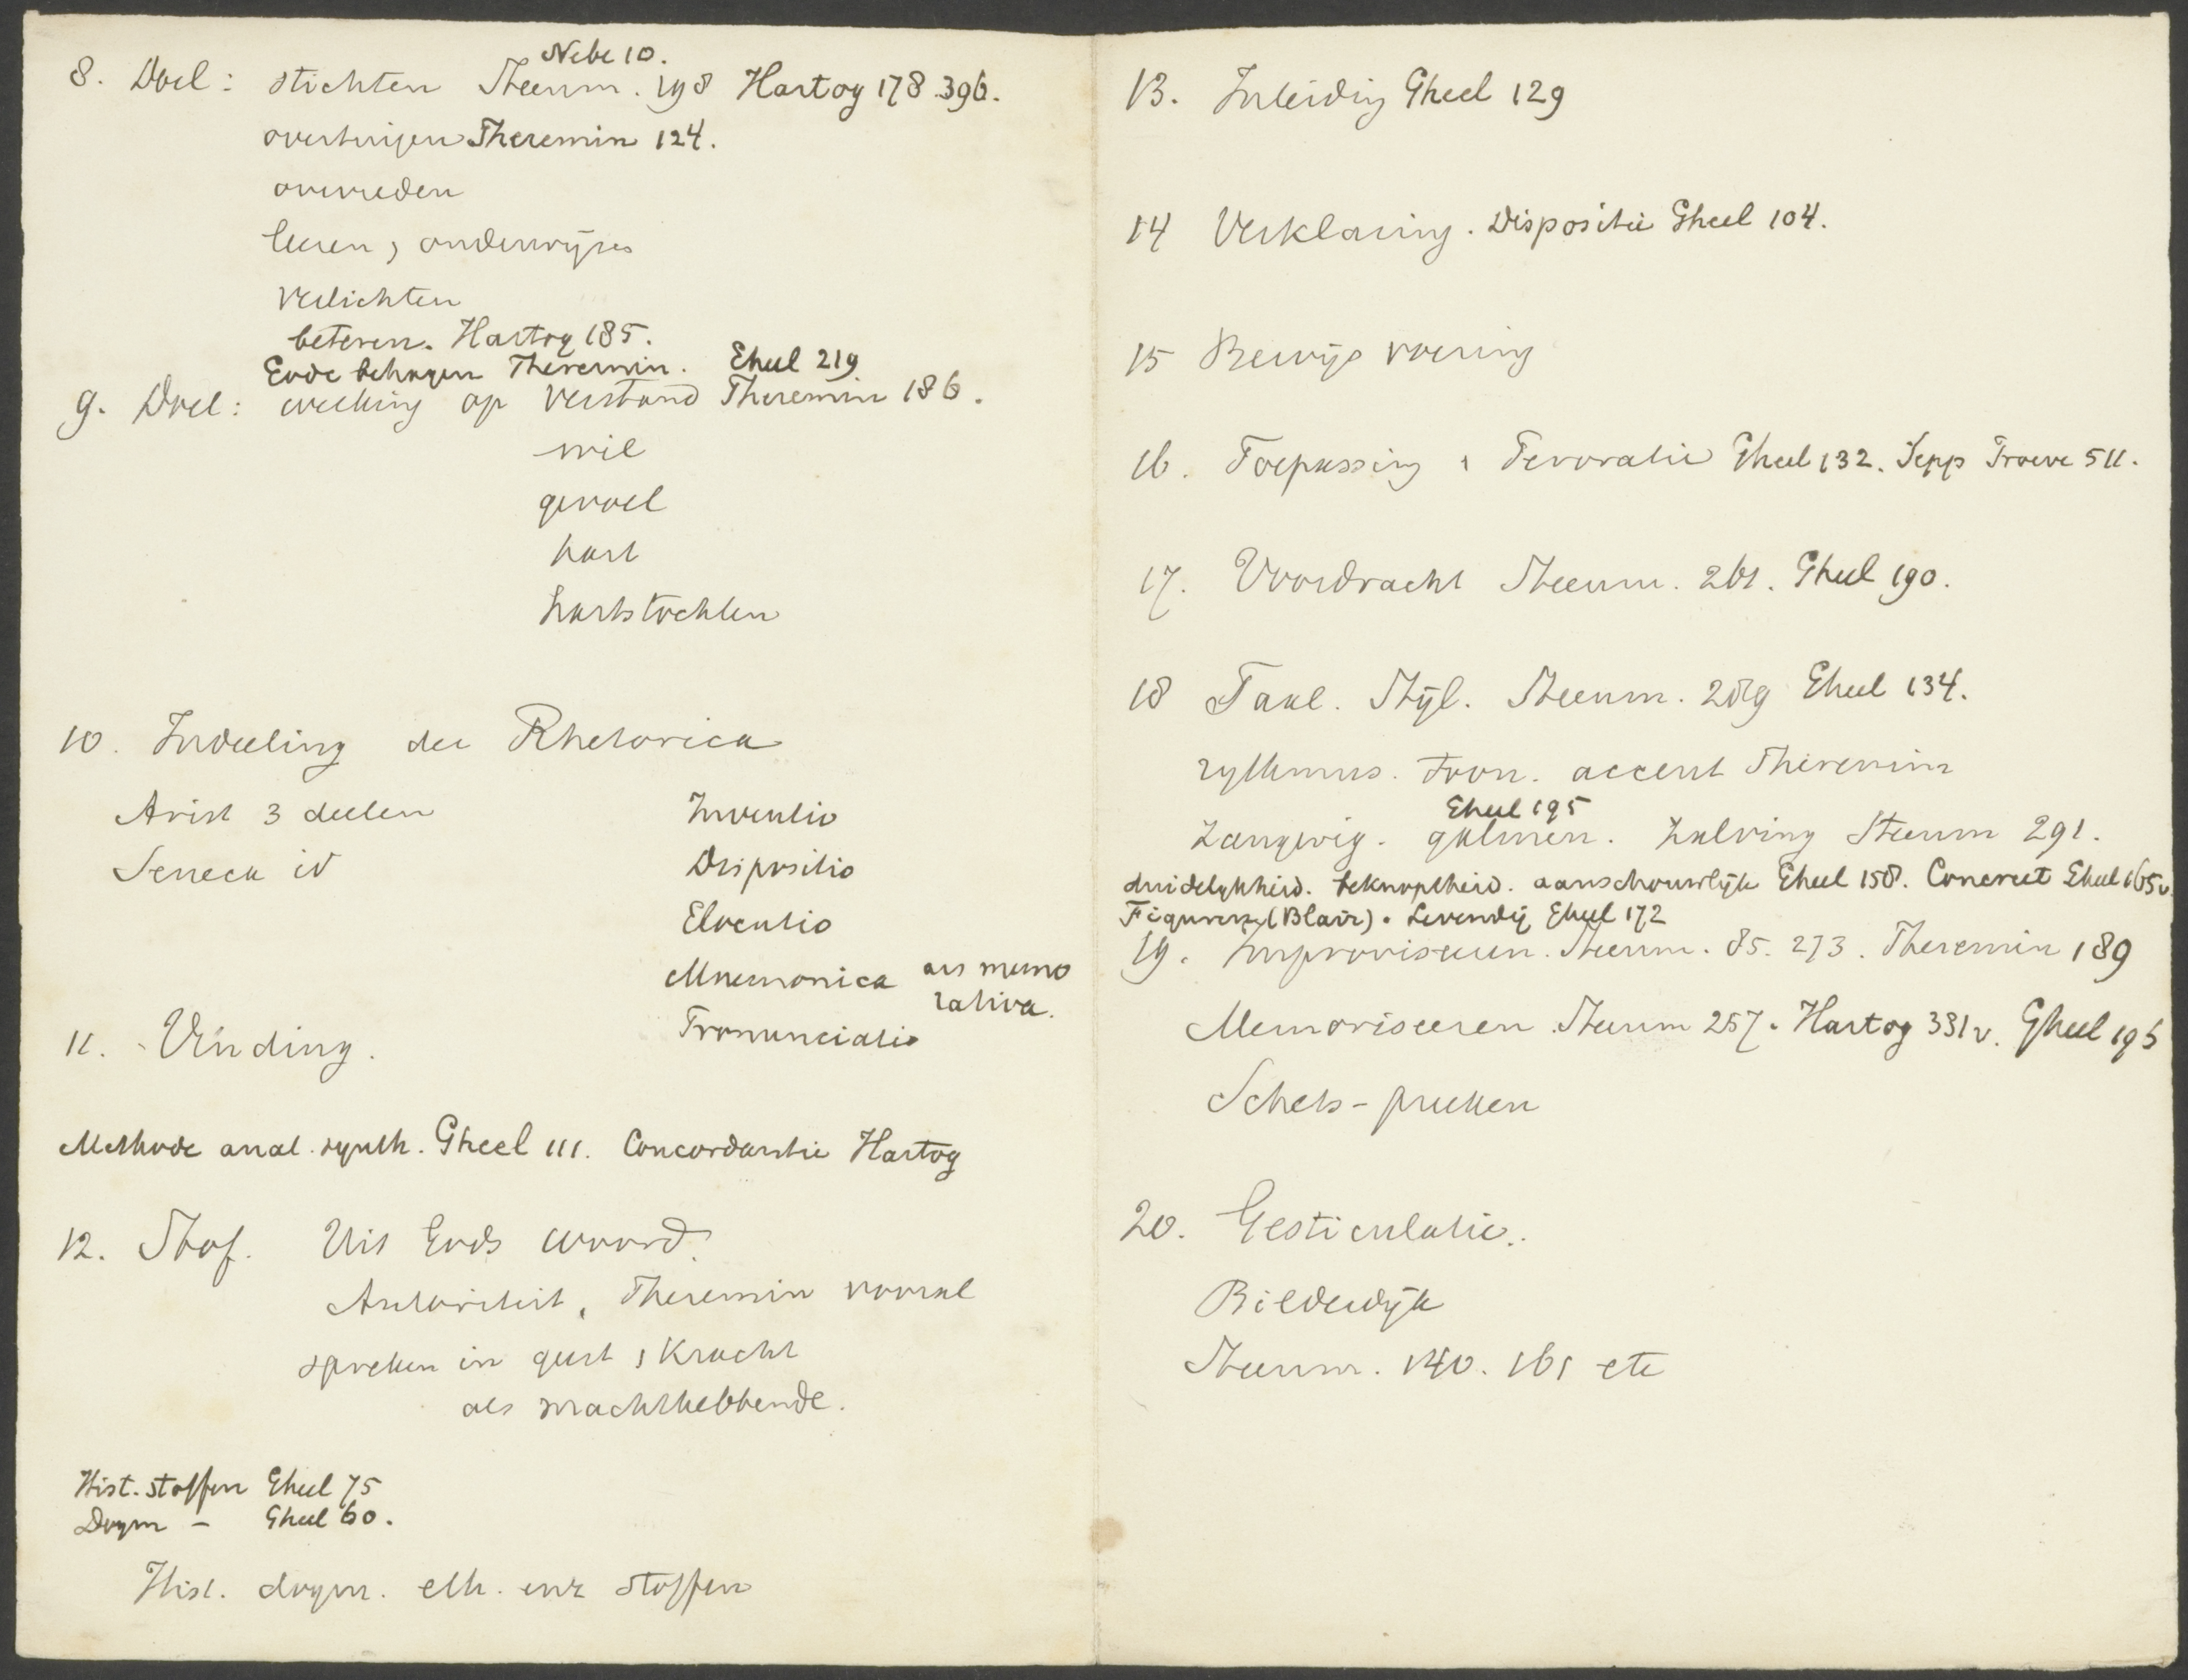 Nebe 10.
8. Doel: stichten Steenm. 198 Hartog 178. 396.
overtuigen Theremin 124.
overreden
leeren, onderwijzen
verlichten
beteren. Hartog 185.
Gode behagen Theremin. Gheel 219
9. Doel: werking op verstand Theremin 186.
wil
gevoel
hart
hartstochten
10. Indeeling der Rhetorica
Arist 3 deelen Inventio
Seneca id Dispositio
Elocutio
Mnemonica ars memo
rativa.
Pronunciatio
11. Vinding.
Methode anal. synth. Gheel 111. Concordantie Hartog
12. Stof. Uit Gods woord.
Autoriteit, Theremin vooral
spreken in geest, kracht
als machthebbende.
Hist. stoffen Gheel 75
Dogm – Gheel 60.
Hist. dogm. eth. enz stoffen
13. Inleiding Gheel 129
14 Verklaring. Dispositie Gheel 104.
15 Bewijs voering
16. Toepassing, Peroratie Gheel 132. Sepp Proeve 511.
17. Voordracht Steenm. 261. Gheel 190.
18 Taal. Stijl. Steenm. 289 Gheel 134.
rythmus. Pron. accent Theremin
Gheel 195
Zangerig. galmen. Zalving Steenm 291.
duidelijkheid. beknoptheid. aanschouwlijk Gheel 158. Concreet Gheel 165v.
Figuren (Blair). Levendig Gheel 172
19. Improviseeren. Steenm. 85. 273. Theremin 189
Memoriseeren. Steenm 257. Hartog 331v. Gheel 196
Schets-preeken
20. Gesticulatie.
Bilderdijk
Steenm. 140. 161 etc